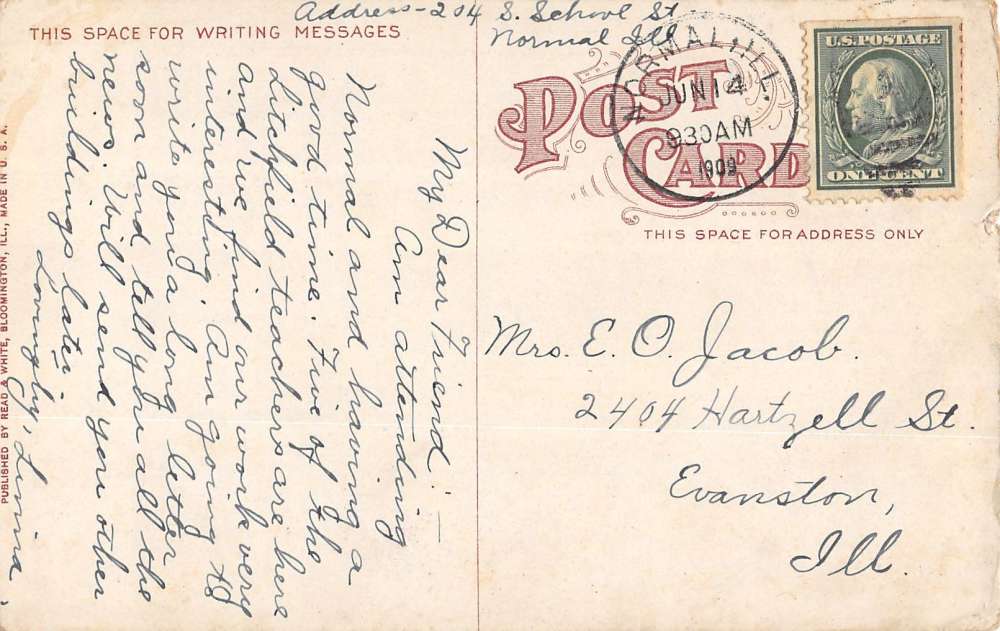 Address - 204 S. School St.
Normal Ill
THIS SPACE FOR WRITING MESSAGES
My Dear Friend: -
Am attending
Normal and having a
good time. Five of the
Litchfield teachers are here
and we find our work very
interesting. Am going to
write you a long letter
soon and tell you all the
news. Will send you other
buildings later.
Lovingly,
PUBLISHED BY READ & WHITE, BLOOMINGTON, ILL., MADE IN U. S. A.
POST
CARD
NORMAL, ILL.
JUN 14
930AM
1909
U.S. POSTAGE
ONE CENT
THIS SPACE FOR ADDRESS ONLY
Mrs. E. O. Jacob.
2404 Hartzell St.
Evanston,
Ill.